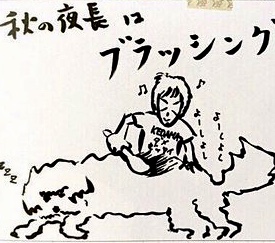 秋の夜長は
ブラッシング
よーしよし
よーしよし